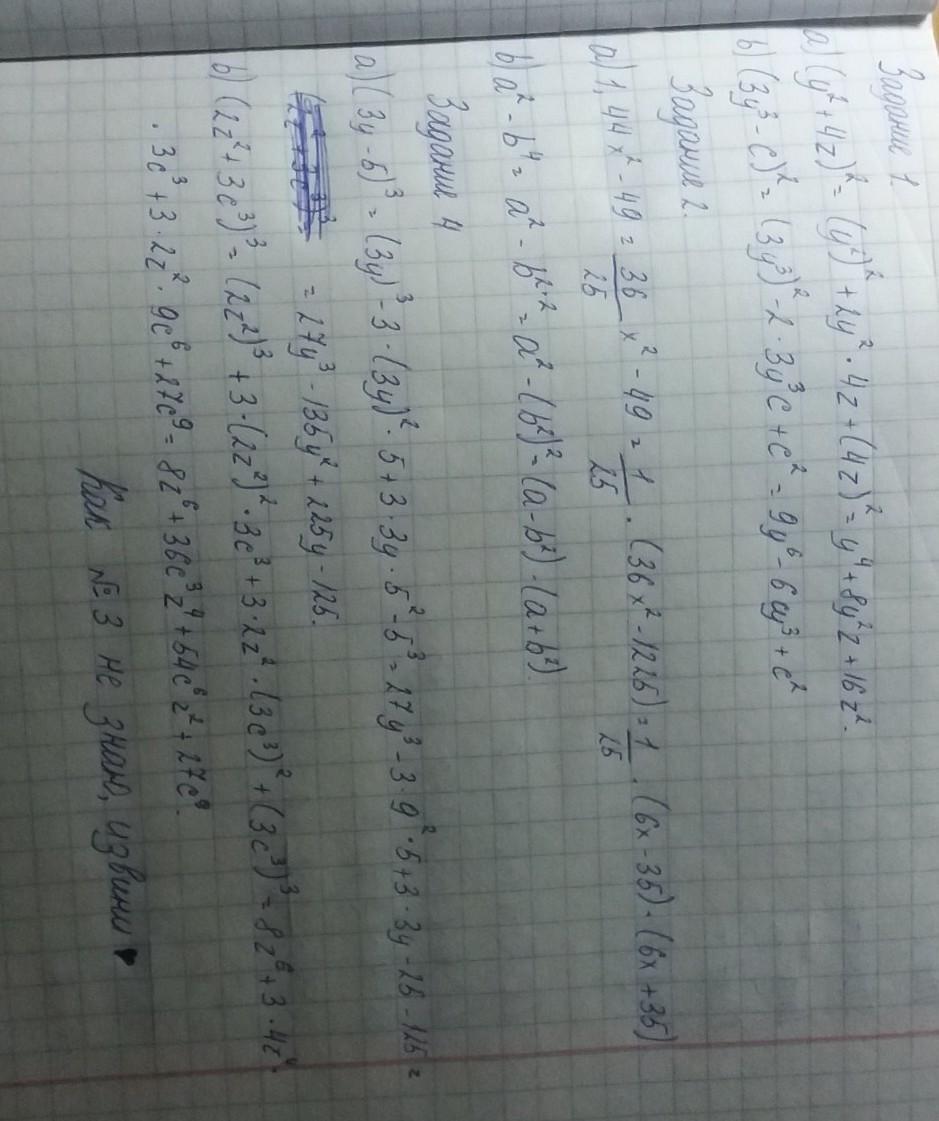 Задание 1.
a) (y² + 4z)² = (y²)² + 2y² · 4z + (4z)² = y⁴ + 8y²z + 16z².
b) (3y³ - c)² = (3y³)² - 2 · 3y³c + c² = 9y⁶ - 6cy³ + c²
Задание 2.
a) 1,44x² - 49 = 36/25 x² - 49 = 1/25 · (36x² - 1225) = 1/25 · (6x - 35) · (6x + 35)
b) a² - b⁴ = a² - b²·² = a² - (b²)² = (a - b²) · (a + b²).
Задание 4
a) (3y - 5)³ = (3y)³ - 3 · (3y)² · 5 + 3 · 3y · 5² - 5³ = 27y³ - 3 · 9² · 5 + 3 · 3y - 25 - 125 =
= 27y³ - 135y² + 225y - 125.
b) (2z² + 3c³)³ = (2z²)³ + 3 · (2z²)² · 3c³ + 3 · 2z² · (3c³)² + (3c³)³ = 8z⁶ + 3 · 4z⁴ ·
· 3c³ + 3 · 2z² · 9c⁶ + 27c⁹ = 8z⁶ + 36c³z⁴ + 54c⁶z² + 27c⁹.
Как № 3 не знаю, извини ♥